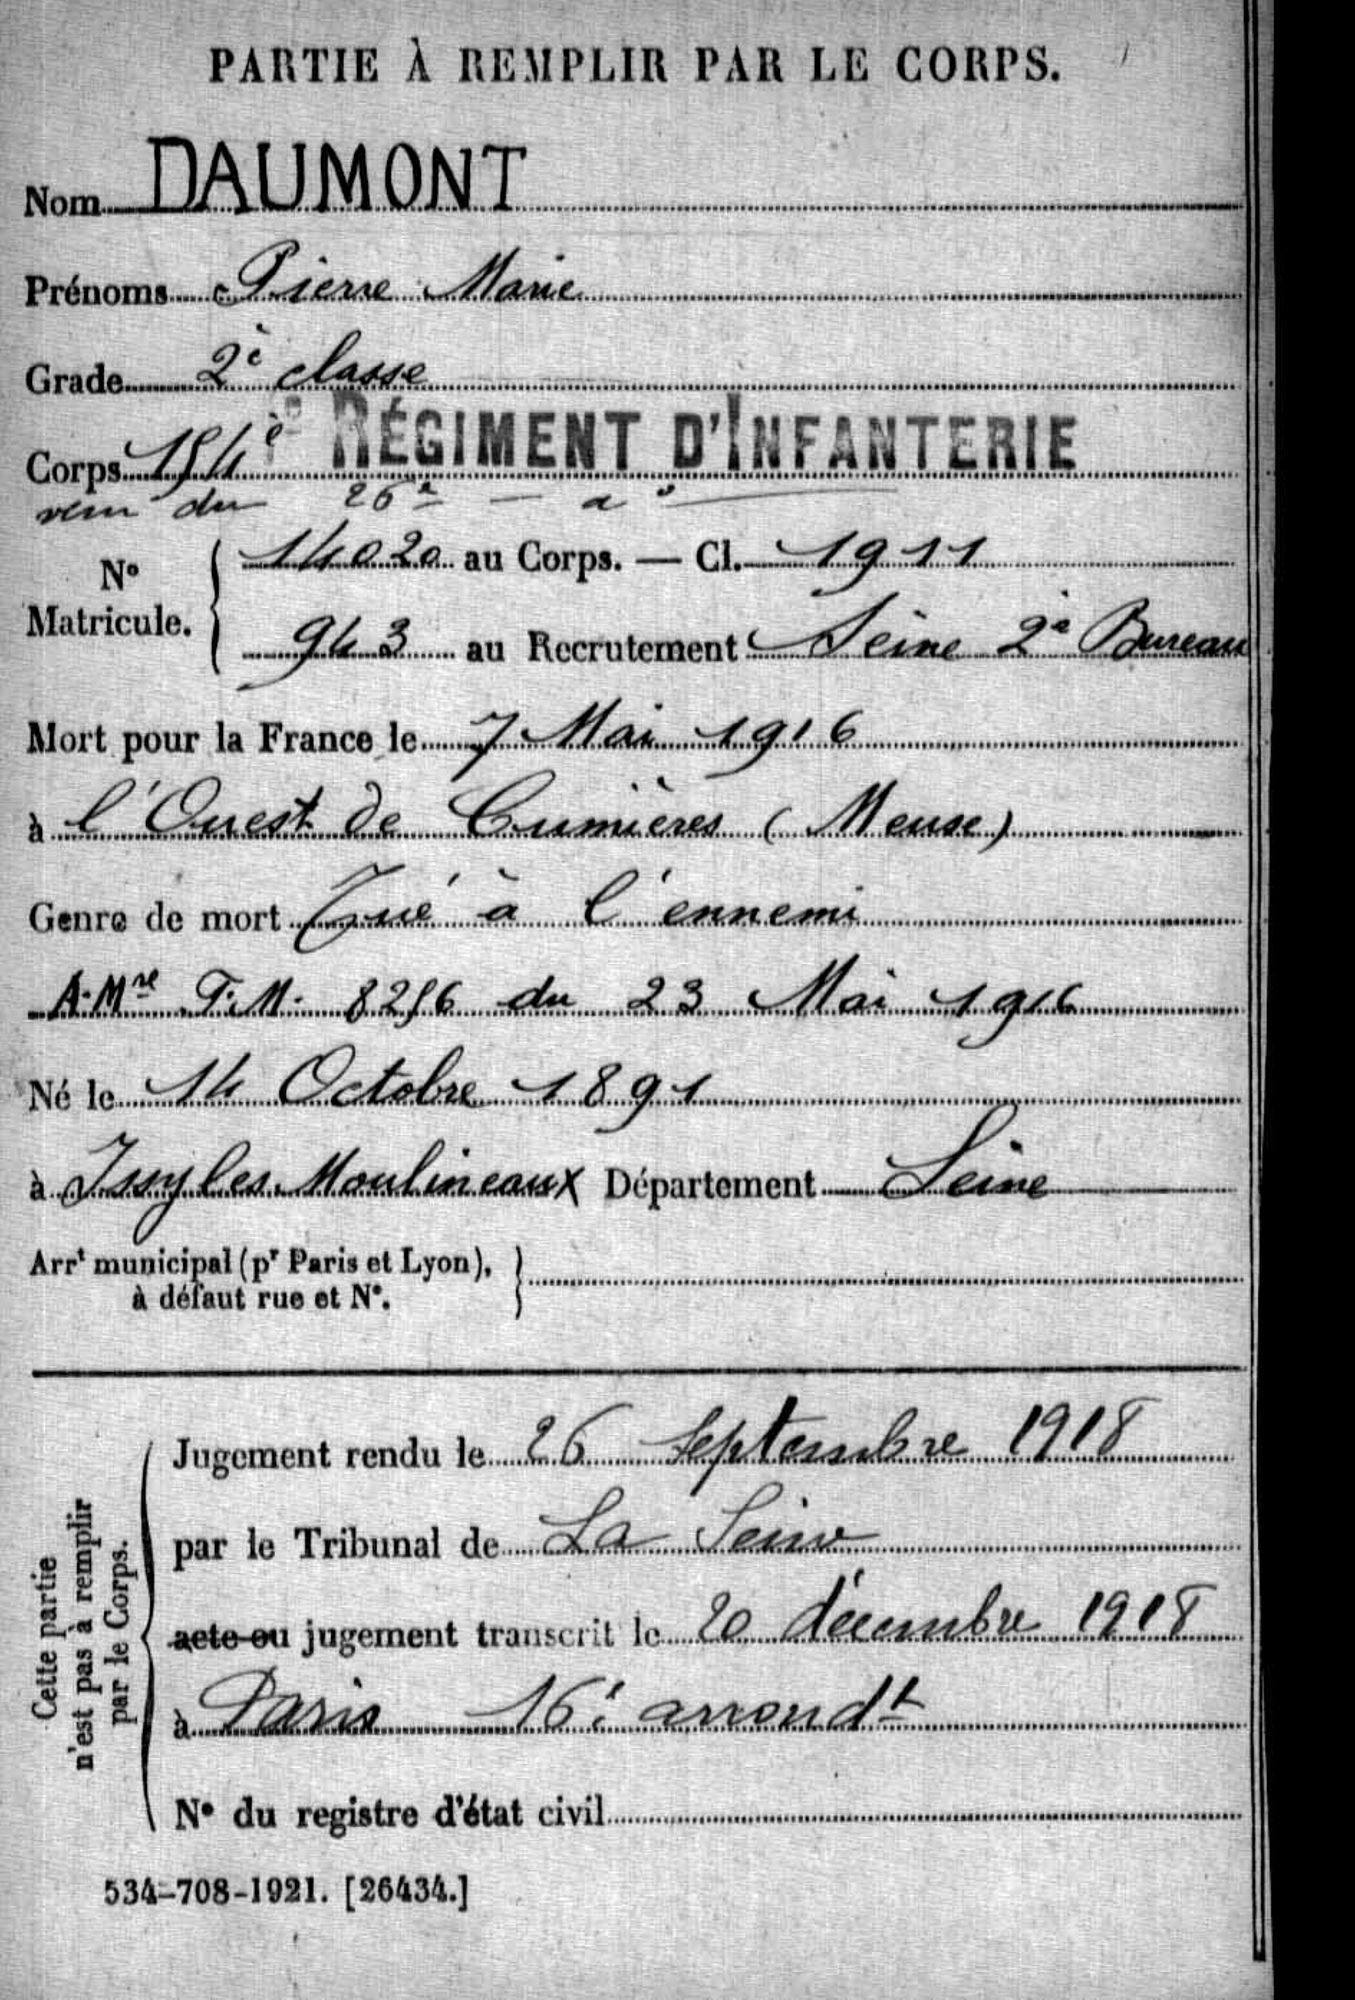 PARTIE À REMPLIR PAR LE CORPS.
Nom DAUMONT
Prénoms Pierre Marie
Grade 2e classe
Corps 154e RÉGIMENT D'INFANTERIE
venu du 26e — d° —
N° Matricule. 14020 au Corps. — Cl. 1911
943 au Recrutement Seine 2e Bureau
Mort pour la France le 7 Mai 1916
à l'Ouest de Cumières (Meuse)
Genre de mort Tué à l'ennemi
A.Mre F.M. 8256 du 23 Mai 1916
Né le 14 Octobre 1891
à Issy les Moulineaux Département Seine
Arrt municipal (pr Paris et Lyon),
à défaut rue et N°.
Cette partie
n'est pas à remplir
par le Corps.
Jugement rendu le 26 Septembre 1918
par le Tribunal de La Seine
acte ou jugement transcrit le 20 décembre 1918
à Paris 16e arrondt
N° du registre d'état civil
534-708-1921. [26434.]